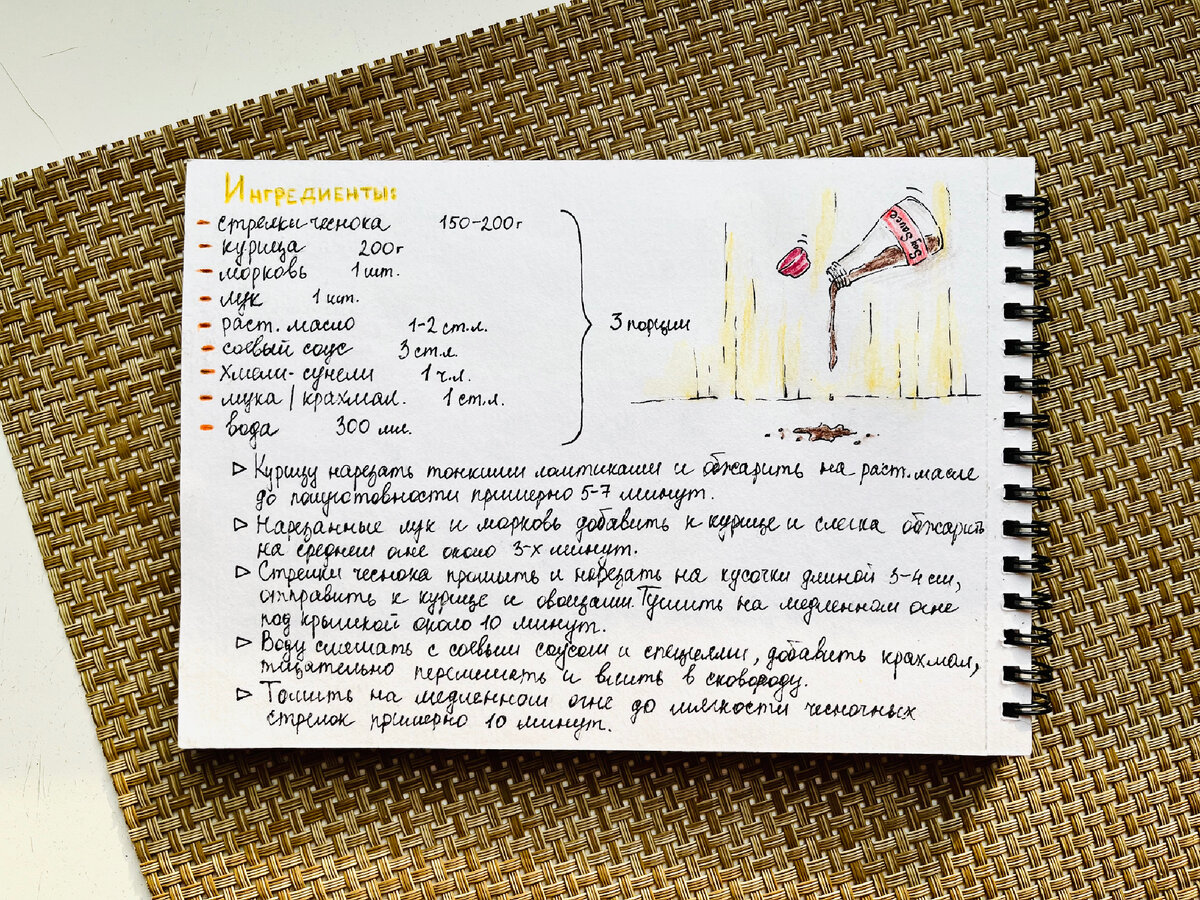 Ингредиенты:
- стрелки чеснока 150-200г
- курица 200г
- морковь 1 шт.
- лук 1 шт.
- раст. масло 1-2 ст.л.
- соевый соус 3 ст.л.
- хмели-сунели 1 ч.л.
- мука / крахмал. 1 ст.л.
- вода 300 мл.
3 порции
Soy Sauce
▷ Курицу нарезать тонкими ломтиками и обжарить на раст. масле
до полуготовности примерно 5-7 минут.
▷ Нарезанные лук и морковь добавить к курице и слегка обжарить
на среднем огне около 3-х минут.
▷ Стрелки чеснока промыть и нарезать на кусочки длиной 3-4 см,
отправить к курице и овощами. Тушить на медленном огне
под крышкой около 10 минут.
▷ Воду смешать с соевым соусом и специями, добавить крахмал,
тщательно перемешать и влить в сковороду.
▷ Томить на медленном огне до мягкости чесночных
стрелок примерно 10 минут.